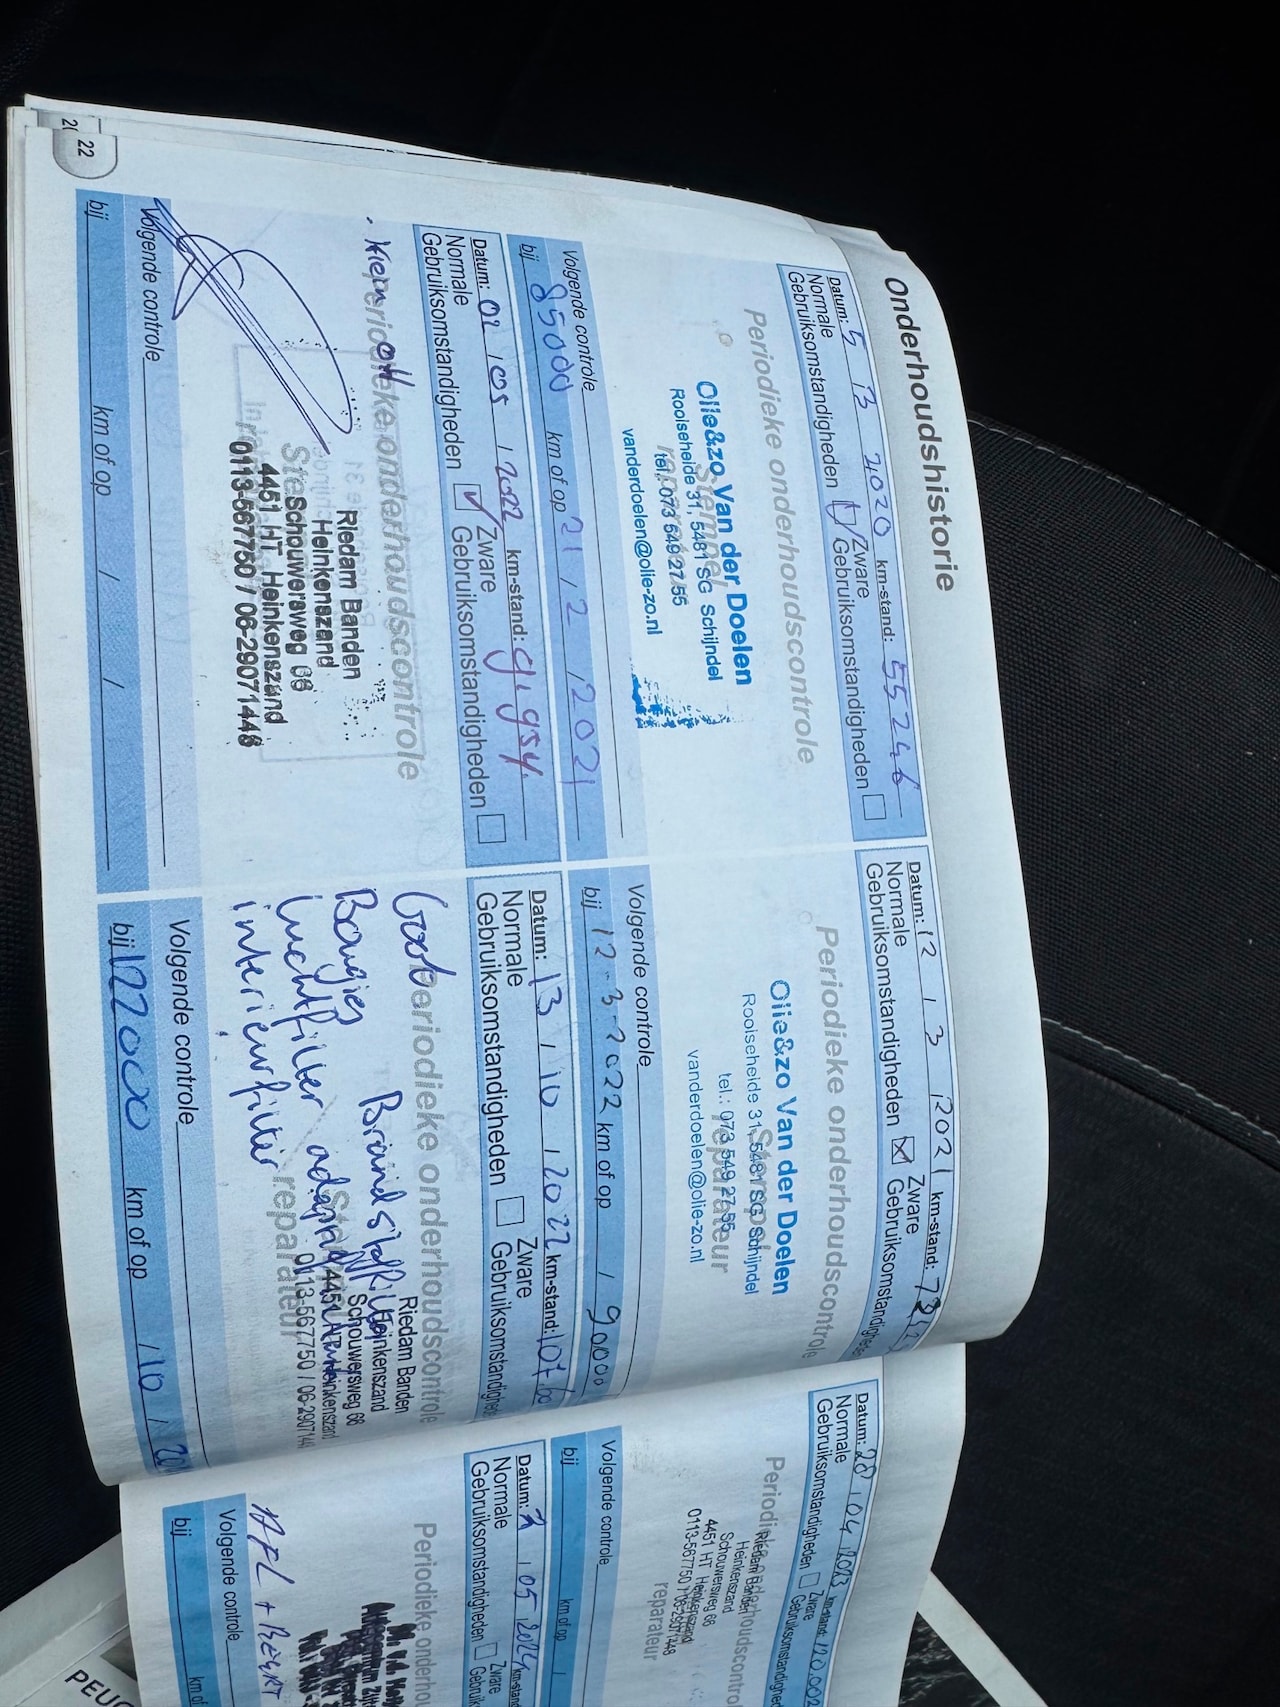 Onderhoudshistorie
Datum: 5 / 3 2020 km-stand: 55246
Normale
Gebruiksomstandigheden
Zware
Gebruiksomstandigheden
Periodieke onderhoudscontrole
Stempel
reparateur
Olie&zo Van der Doelen
Rooiseheide 31, 5481 SG Schijndel
tel.: 073 549 27 55
vanderdoelen@olie-zo.nl
Volgende controle
bij 85000 km of op 21 / 2 / 2021
Datum: 12 / 3 / 2021 km-stand:
Normale
Gebruiksomstandigheden
Zware
Gebruiksomstandigheden
Periodieke onderhoudscontrole
Stempel
reparateur
Olie&zo Van der Doelen
Rooiseheide 31, 5481 SG Schijndel
tel.: 073 549 27 55
vanderdoelen@olie-zo.nl
Volgende controle
bij 12-3-2022 km of op / 90000
Datum: 02 / 05 / 2022 km-stand:
Normale
Gebruiksomstandigheden
Zware
Gebruiksomstandigheden
Periodieke onderhoudscontrole
Klein OH
Riedam Banden
Heinkenszand
Schouwersweg 68
4451 HT Heinkenszand
0113-567750 / 06-29071448
Volgende controle
bij km of op / /
Datum: 13 / 10 / 2022 km-stand:
Normale
Gebruiksomstandigheden
Zware
Gebruiksomstandigheden
Periodieke onderhoudscontrole
reparateur
Groot
Bougies
luchtfilter
interieurfilter
Riedam Banden
Heinkenszand
Schouwersweg 68
4451 HT Heinkenszand
0113-567750 / 06-2907144
Volgende controle
bij 122000 km of op / 10 /
22
Datum: 20 / 04 / 2023 km-stand:
Normale
Gebruiksomstandigheden
Zware
Periodieke onderhoudscontrol
Riedam Banden
Heinkenszand
Schouwersweg 68
4451 HT Heinkenszand
0113-567750 / 06-29071448
reparateur
Volgende controle
bij km of op /
Datum: / 05 / 2024 km-stand
Normale
Gebruiksomstandigheden
Zware
Periodieke onderhou
APL +
Volgende controle
bij km of
PEUG